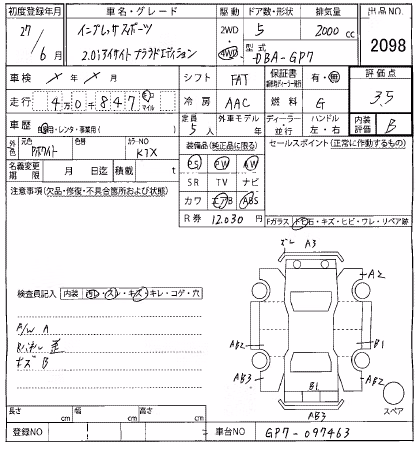 初度登録年月 車名・グレード 駆動 ドア数・形状 排気量 出品NO.
27 / 6月 インプレッサスポーツ 2WD 4WD 5 2000 cc 2098
2.0i アイサイト プラウドエディション 型式 DBA-GP7
車検 × 年 × 月 シフト FAT 保証書 有・無 評価点
走行 40847 キロ マイル 冷房 AAC 燃料 G 3.5
車歴 自家用・レンタ・事業用( ) 定員 5人 外車モデル 年 ディーラー・並行 ハンドル 左・右 内装評価 B
外色 元色 色替 カラーNO K1X
装備品(純正品に限る) セールスポイント(正常に作動するもの)
名義変更期限 月 日迄 積載量 t
PS PW AW
SR TV ナビ
カワ エアB ABS
注意事項(欠品・修復・不具合箇所および状態)
R券 12,030 円
Fガラス・キズ・ヒビ・ワレ・リペア跡
検査員記入 内装 ・スレ・キズ・キレ・コゲ・穴
A/W A
キズ B
ズレ A3
A2
AB2 B1
AB2
AB3 B1 A2
AB3 スペア
長さ cm 幅 cm 高さ cm
登録NO 車台NO GP7-097463